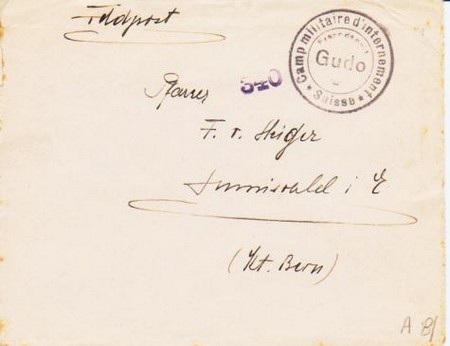 Feldpost
Camp militaire d'internement
Gudo
Suisse
540
Pfarrer
F. v. Steiger
Sumiswald i E
(Kt. Bern)
A 8/